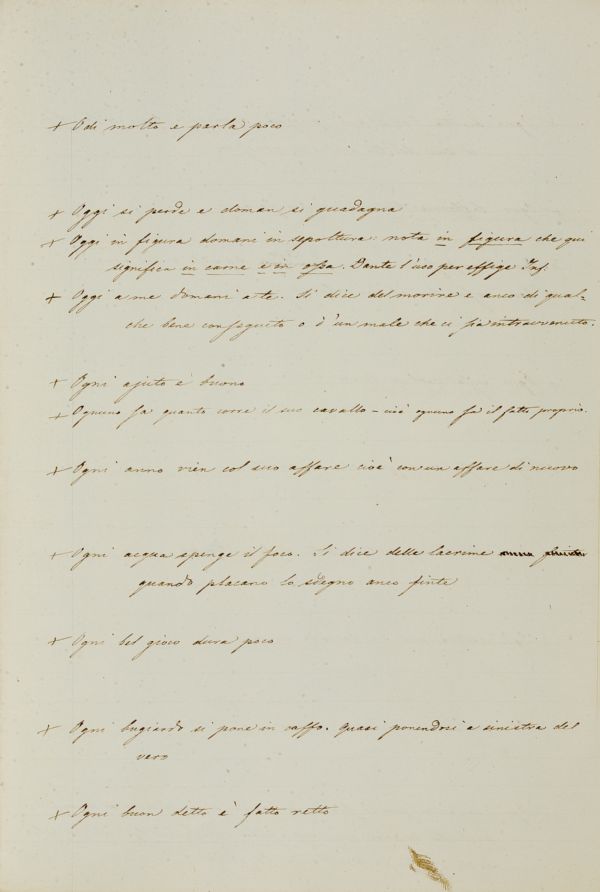 + Odi molto e parla poco
+ Oggi si perde e doman si guadagna
+ Oggi in figura domani in sepoltura: nota in figura che qui
significa in carne e in ossa. Dante l'usò per effige Inf.
+ Oggi a me domani a te. Si dice del morire e anco di qual-
che bene conseguito o d'un male che ci sia intravvenuto.
+ Ogni ajuto è buono
+ Ognuno sa quanto corre il suo cavallo - cioè ognuno sa il fatto proprio.
+ Ogni anno vien col suo affare cioè con un affare di nuovo
+ Ogni acqua spenge il foco. Si dice delle lacrime
quando placano lo sdegno anco finte
+ Ogni bel gioco dura poco
+ Ogni bugiardo si pone in zaffo. quasi ponendosi a sinistra del
vero
+ Ogni buon detto è fatto retto